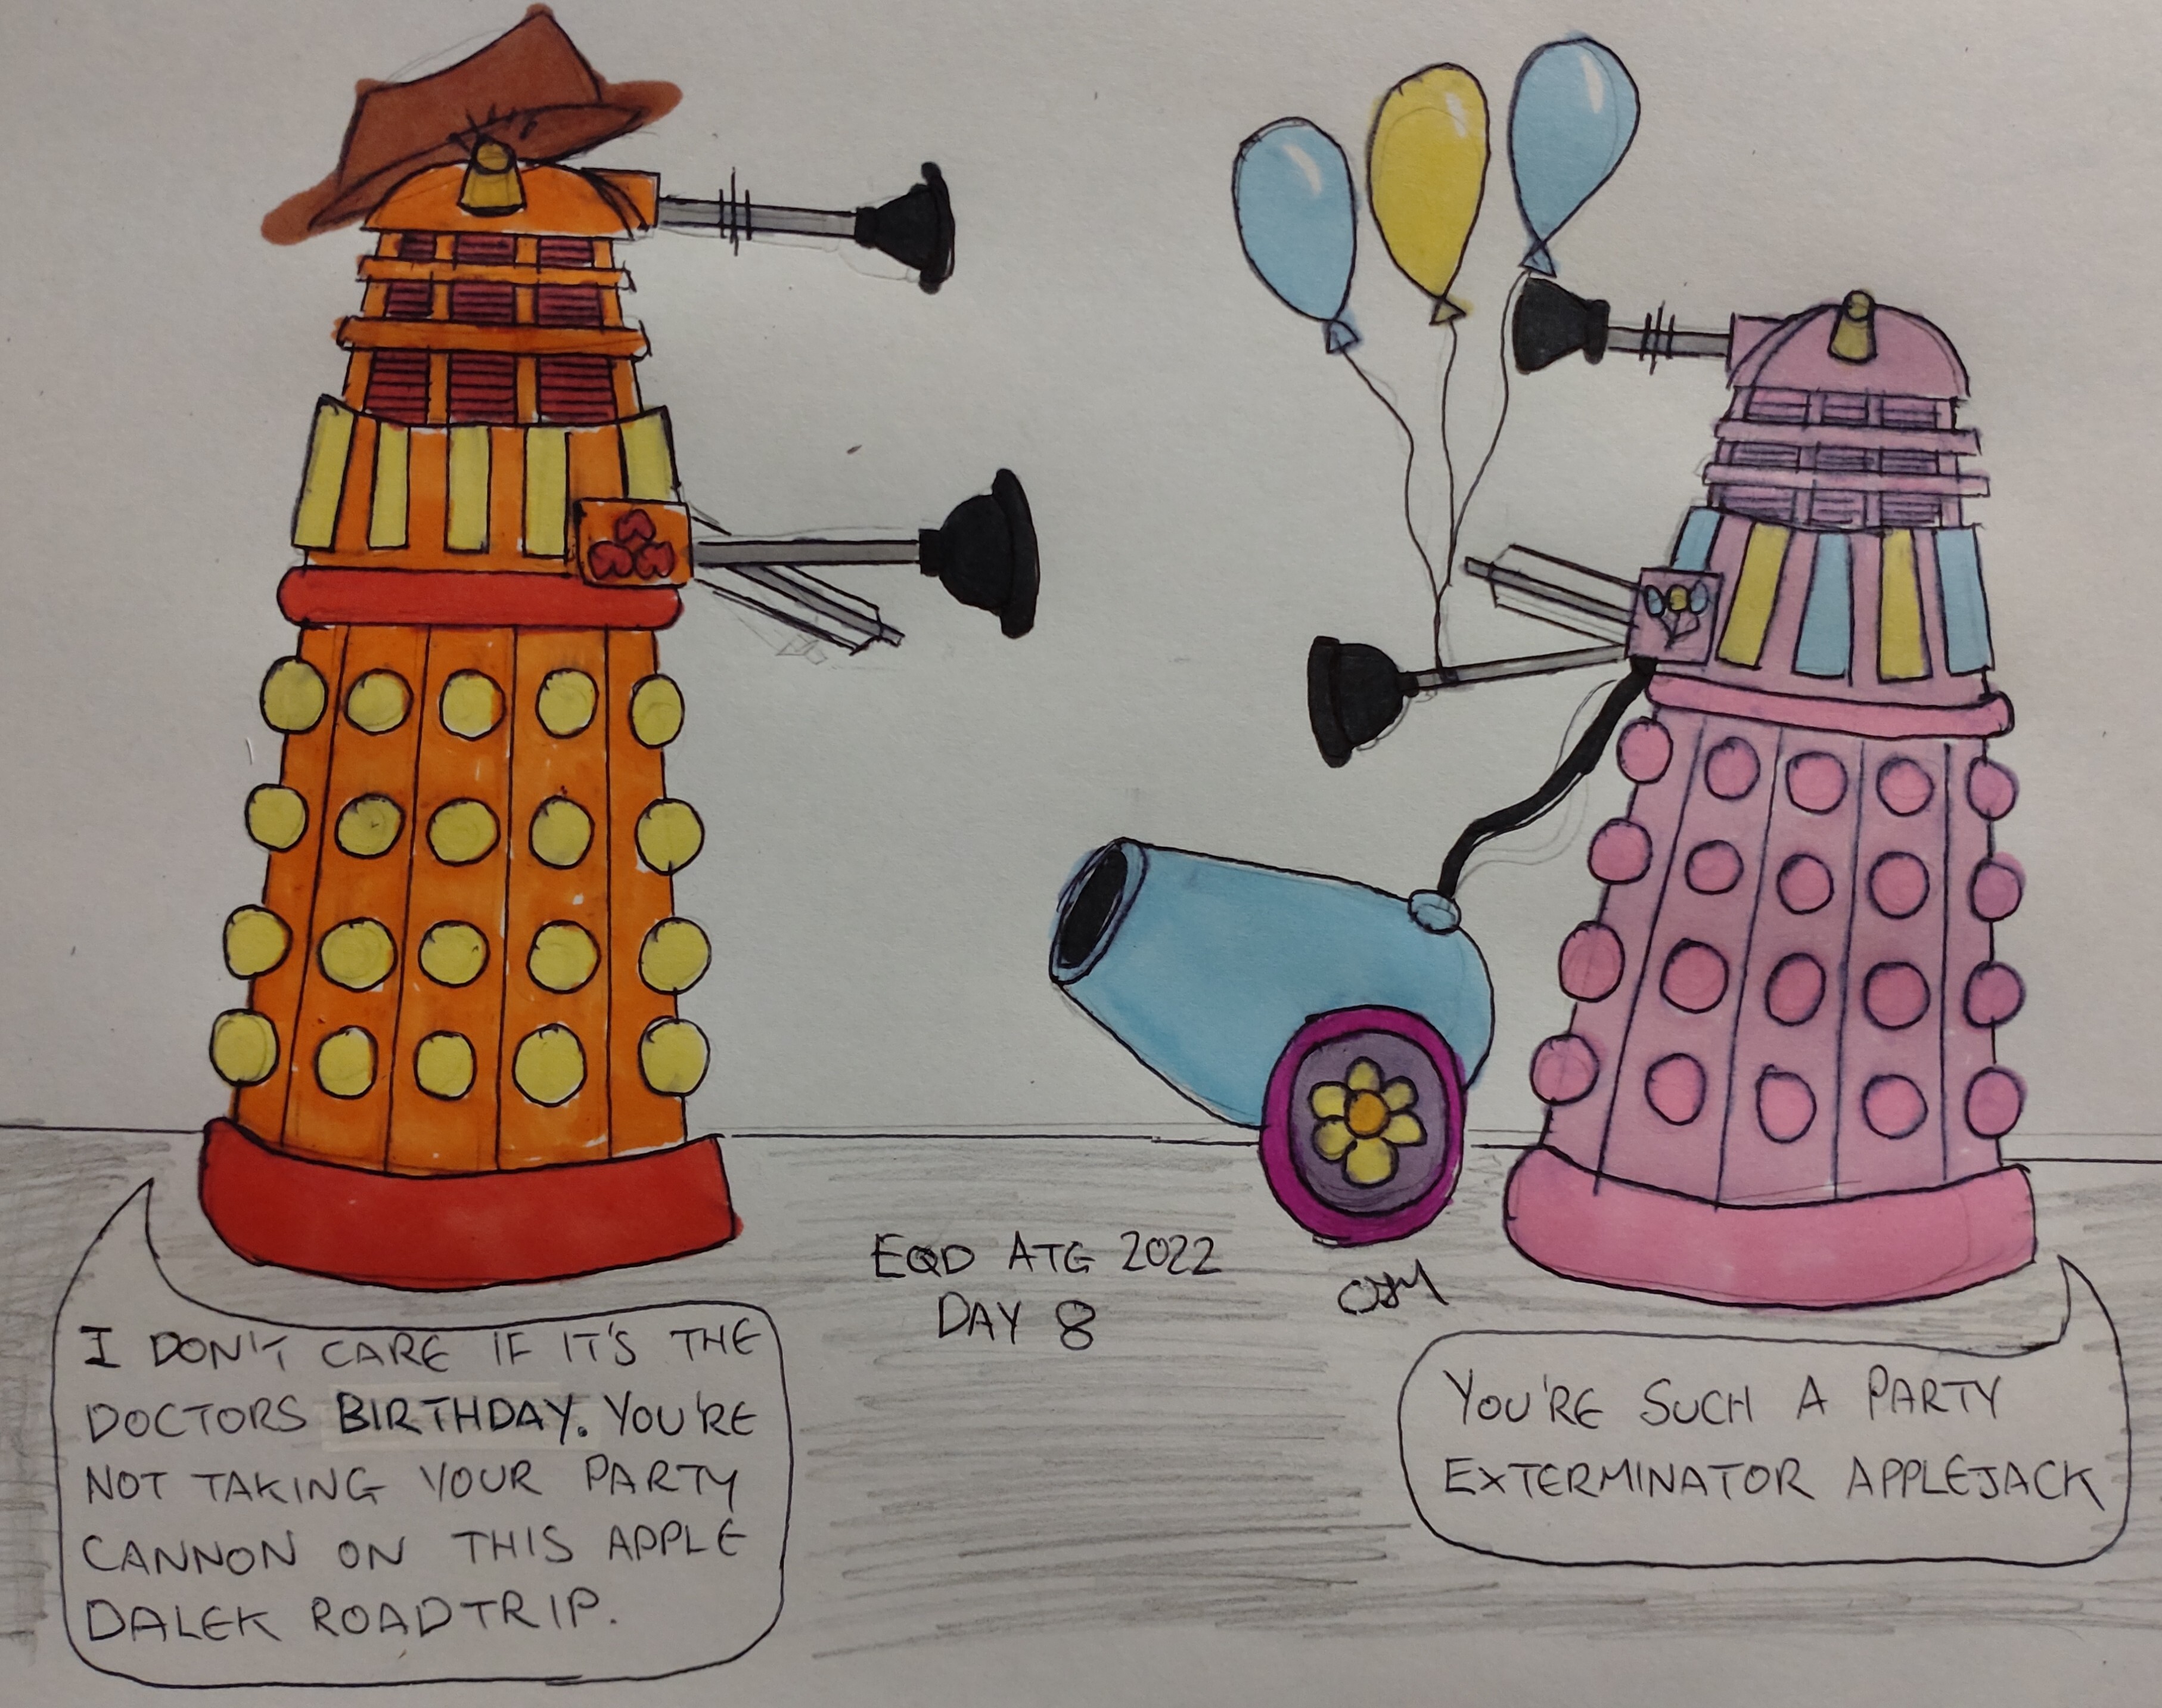 EQD ATG 2022
DAY 8
I DON'T CARE IF IT'S THE
DOCTORS BIRTHDAY. YOU'RE
NOT TAKING YOUR PARTY
CANNON ON THIS APPLE
DALEK ROADTRIP.
YOU'RE SUCH A PARTY
EXTERMINATOR APPLEJACK